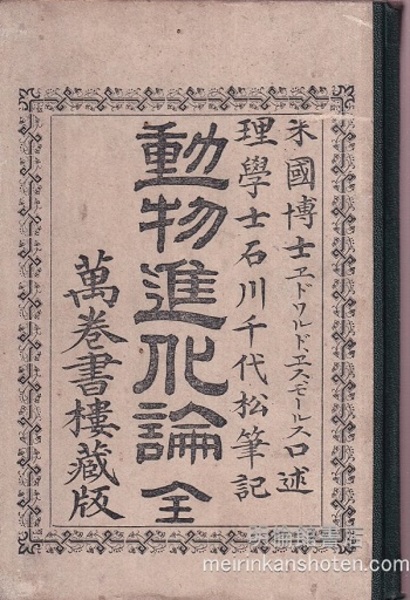 米國博士ヱドワルドヱスモールス口述
理學士石川千代松筆記
動物進化論 全
萬卷書樓藏版
明倫館書店
meirinkanshoten.com